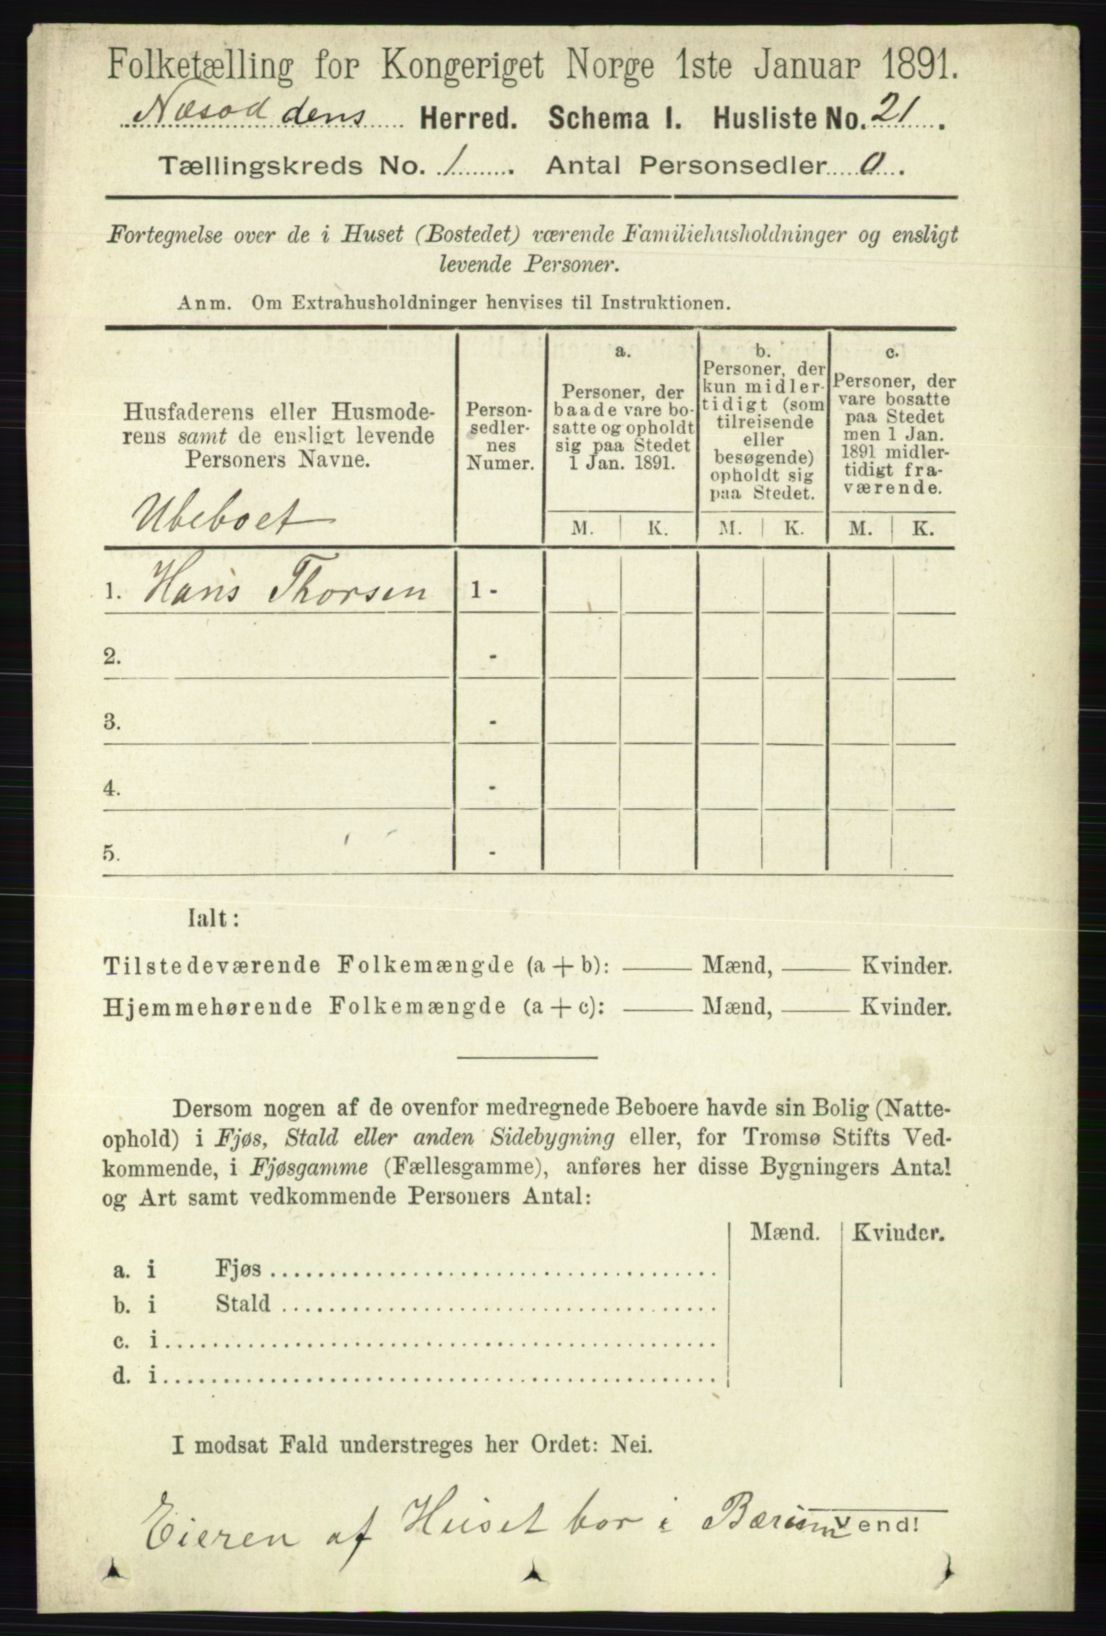 Folketælling for Kongeriget Norge 1ste Januar 1891.
Næsoddens Herred. Schema I. Husliste No. 21.
Tællingskreds No. 1. Antal Personsedler 0.
Fortegnelse over de i Huset (Bostedet) værende Familiehusholdninger og ensligt
levende Personer.
Anm. Om Extrahusholdninger henvises til Instruktionen.
Husfaderens eller Husmode-
rens samt de ensligt levende
Personers Navne.
Ubeboet
Person-
sedler-
nes
Numer.
a.
Personer, der
baade vare bo-
satte og opholdt
sig paa Stedet
1 Jan. 1891.
M. K.
b.
Personer, der
kun midler-
tidigt (som
tilreisende
eller
besøgende)
opholdt sig
paa Stedet.
M. K.
c.
Personer, der
vare bosatte
paa Stedet
men 1 Jan.
1891 midler-
tidigt fra-
værende.
M. K.
1. Hans Thorsen 1 -
2. -
3. -
4. -
5. -
Ialt:
Tilstedeværende Folkemængde (a + b): —— Mænd, —— Kvinder.
Hjemmehørende Folkemængde (a + c): —— Mænd, —— Kvinder.
Dersom nogen af de ovenfor medregnede Beboere havde sin Bolig (Natte-
ophold) i Fjøs, Stald eller anden Sidebygning eller, for Tromsø Stifts Ved-
kommende, i Fjøsgamme (Fællesgamme), anføres her disse Bygningers Antal
og Art samt vedkommende Personers Antal:
Mænd. Kvinder.
a. i Fjøs
b. i Stald
c. i
d. i
I modsat Fald understreges her Ordet: Nei.
Eieren af Huset bor i Bærum
Vend!